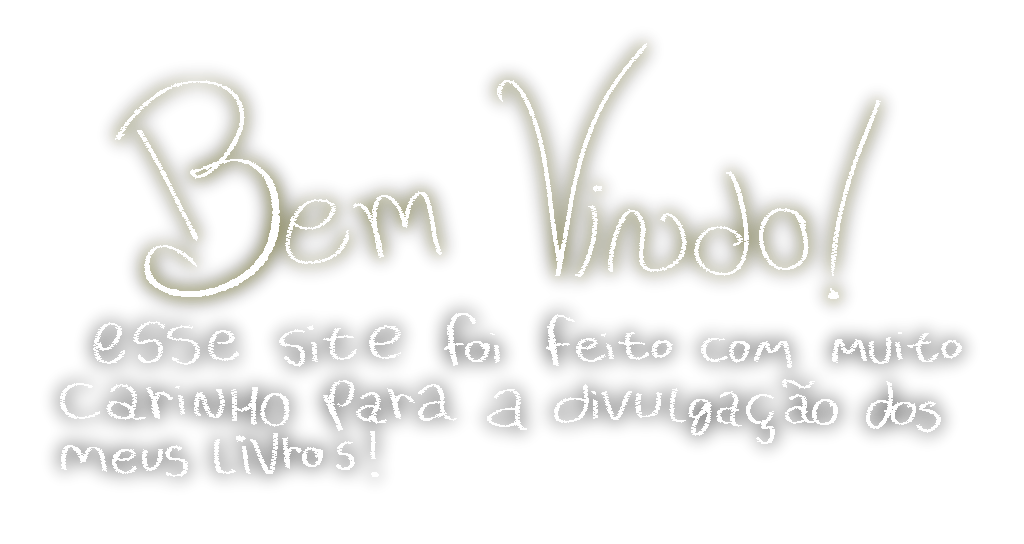 Bem Vindo!
esse site foi feito com muito
carinho para a divulgação dos
meus livros!